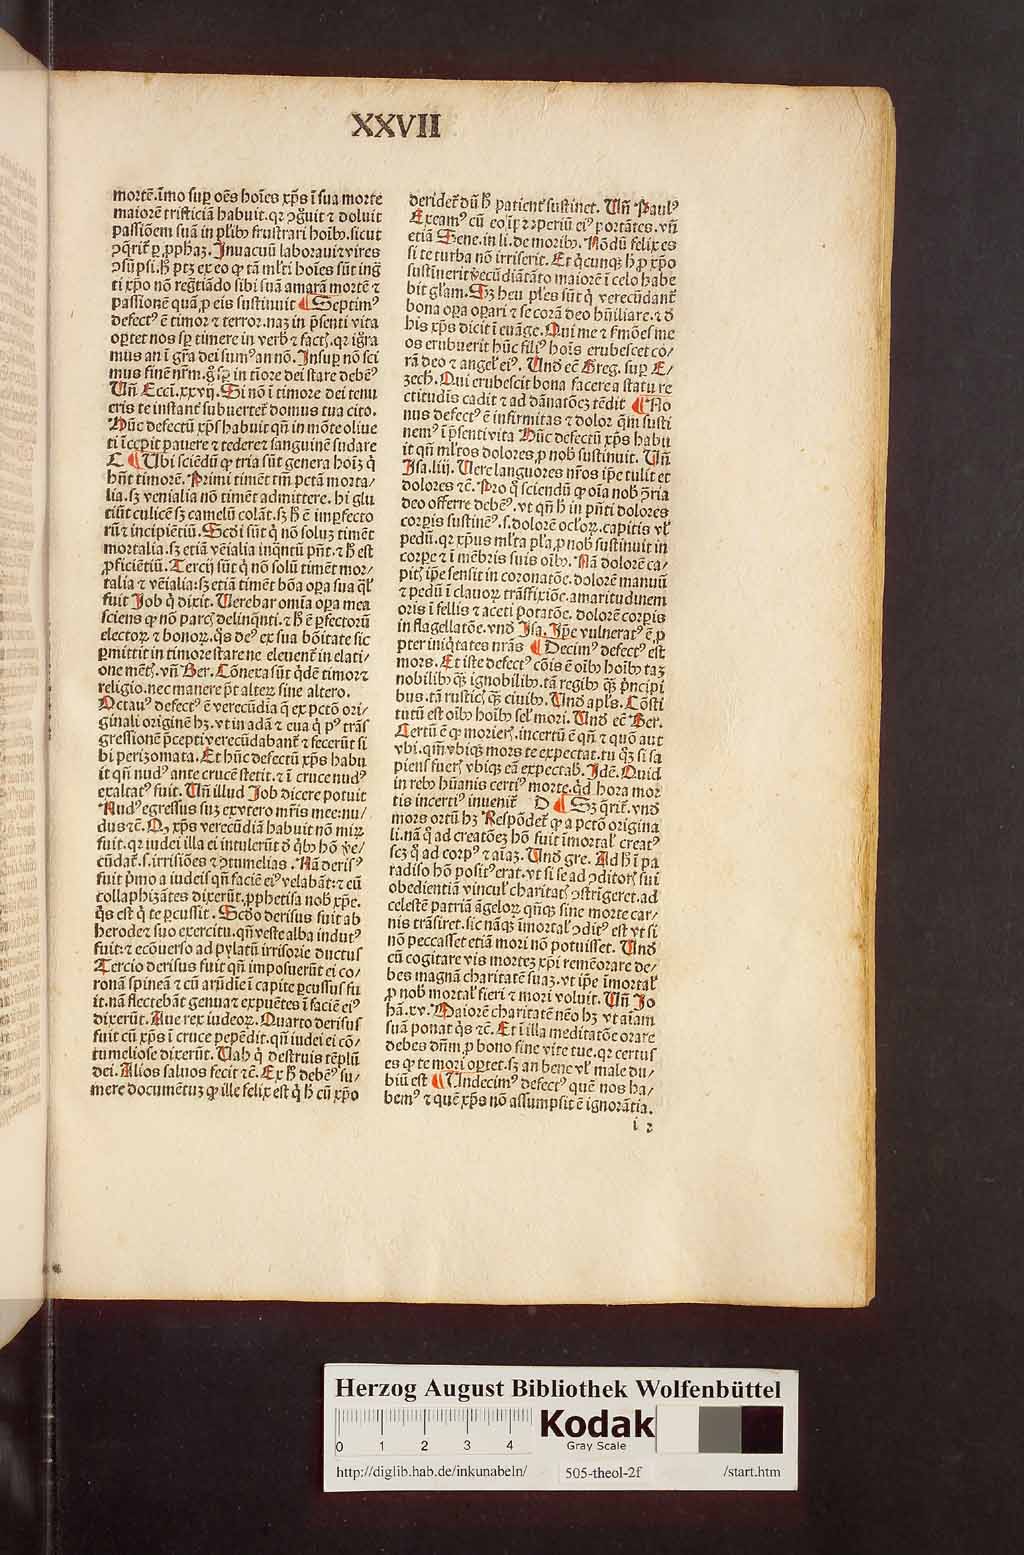 XXVII
mortē.īmo suꝑ oēs hoīes xp̄s ī sua morte
maiorē tristiciā habuit.qꝛ ꝯg̃uit ⁊ doluit
passiōem suā in pl̄ibꝯ frustrari hoībꝯ.sicut
ꝯqrit̃ ꝑ ꝓphaꝫ.Inuacuū laboraui ⁊ vires
ꝯsūpsi.hꝰ ptꝫ ex eo ꝙ tā ml̄ti hoīes sūt ing̃
ti xp̄o nō reg̃tiādo sibi suā amarā mortē ⁊
passionē quā ꝓ eis sustinuit ¶ Septimꝰ
defectꝰ ē timor ⁊ terror.naꝫ in p̄senti vita
oꝑtet nos sꝑ timere in verbꝭ ⁊ factꝭ.qꝛ igr̄a
mus an ī gr̄a dei sumꝰ an nō.Insuꝑ nō sci
mus finē nr̄m.g̊ sꝑ in tīore dei stare debēꝰ
Un̄ Eccī.xxvij.Si nō ī timore dei tenu
eris te instant̃ subuertet̃ domus tua cito.
Hūc defectū xp̄s habuit qn̄ in mōte oliue
ti īcepit pauere ⁊ tedere ⁊ sanguinē sudare
C ¶ Ubi sciēdū ꝙ tria sūt genera hoīꝫ q̇
hn̄t timorē.Primi timēt tm̄ pctā morta/
lia.sꝫ venialia nō timēt admittere.hi glu
tiūt culicē sꝫ camelū colāt.sꝫ hꝰ ē imꝑfecto
rū ⁊ incipiētiū.Scdi sūt q̇ nō soluꝫ timēt
mortalia.sꝫ etiā vēialia inqntū pn̄t.⁊ hꝰ est
ꝓficiētiū.Tercij sūt q̇ nō solū timēt mor/
talia ⁊ vēialia:sꝫ etiā timēt bōa oꝑa sua ql̄
fuit Job q̇ dixit.Uerebar omīa oꝑa mea
sciens ꝙ nō parcꝭ delinqnti.⁊ hꝰ ē ꝑfectorū
electoꝝ ⁊ bonoꝝ.q̊s deꝰ ex sua bōitate sic
ꝑmittit in timore stare ne eleuent̃ in elati/
one mētꝭ.vn̄ Ber.Cōnexa sūt qdē timor ⁊
religio.nec manere pt̄ alteꝝ sine altero.
Octauꝰ defectꝰ ē verecūdia q̄ ex pctō ori/
ginali originē hꝫ.vt in adā ⁊ eua q̇ pꝰ trās
gressionē p̄cepti verecūdabant̃ ⁊ fecerūt si
bi perizomata.Et hūc defectū xp̄s habu
it qn̄ nudꝰ ante crucē stetit.⁊ ī cruce nudꝰ
exaltatꝰ fuit.Un̄ illud Job dicere potuit
Nudꝰ egressus suꝫ ex vtero mr̄is mee:nu/
dus ⁊c̄.Qꝫ xp̄s verecūdiā habuit nō miꝝ
fuit.qꝛ iudei illa ei intulerūt ꝺ̊ qbꝯ hō ve/
cūdat̃.s.irrisiōes ⁊ ꝯtumelias.Nā derisꝰ
fuit p̊mo a iudeis qn̄ faciē eiꝰ velabāt:⁊ eū
collaphizātes dixerūt.ꝓphetisa nobꝭ xp̄e.
q̊s est q̇ te ꝑcussit.Scdo derisus fuit ab
herode ⁊ suo exercitu.qn̄ veste alba indutꝰ
fuit:⁊ ecōuerso ad pylatū irrisorie ductus
Tercio derisus fuit qn̄ imposuerūt ei co/
ronā spineā ⁊ cū arūdie ī capite ꝑcussus fu
it.nā flectebāt genua ⁊ expuētes ī faciē eiꝰ
dixerūt.Aue rex iudeoꝝ.Quarto derisus
fuit cū xp̄s ī cruce pepēdit.qn̄ iudei ei cō/
tumeliose dixerūt.Uah q̇ destruis tēplū
dei.Alios saluos fecit ⁊c̄.Ex hꝰ debēꝰ su/
mere documētuꝫ ꝙ ille felix est q̇ hꝰ cū xp̄o
deridet̃ dū hꝰ patient̃ sustinet.Un̄ Paulꝰ
Exeamꝰ cū eo īꝓꝑiū eiꝰ portātes.vn̄
etiā Sene.in li.de moribꝯ.Nōdū felix es
si te turba nō irriserit.Et q̇cunqꝫ hꝰ ꝓ xp̄o
sustinerit vecūdiā tāto maiorē ī celo habe
bit gl̄iam.Sꝫ heu pl̄es sūt q̇ verecūdant̃
bona oꝑa oꝑari ⁊ se corā deo hūiliare.⁊ ꝺ̊
his xp̄s dicit ī euāge.Qui me ⁊ ẜmōes me
os erubuerit hūc filiꝰ hoīs erubescet co/
rā deo ⁊ angel̄ eiꝰ.Unꝺ̊ eē Greg.suꝑ E/
zech.Qui erubescit bona facere a statu re
ctitudis cadit ⁊ ad dānatōeꝫ tēdit ¶ No
nus defectꝰ ē infirmitas ⁊ dolor q̄m susti
nemꝰ ī p̄senti vita Hūc defectū xp̄s habu
it qn̄ ml̄tos dolores ꝓ nobꝭ sustinuit.Un̄
Isa.liij.Uere languores nr̄os ip̄e tulit et
dolores ⁊c̄.Pro q̊ sciendū ꝙ oīa nobꝭ ꝯria
deo offerre debēꝰ.vt qn̄ hꝰ in pn̄ti dolores
corꝑis sustinēꝰ.s.dolorē ocl̄oꝝ.capitis vl̄
pedū.qꝛ xp̄us ml̄ta pl̄a ꝓ nobꝭ sustinuit in
corꝑe ⁊ ī mēbris suis oībꝯ.Nā dolorē ca/
pitꝭ ip̄e sensit in coronatōe.dolorē manuū
⁊ pedū ī clauoꝝ trāsfixiōe.amaritudinem
oris ī fellis ⁊ aceti potatōe.dolorē corꝑis
in flagellatōe.vnꝺ̊ Isa.Ip̄e vulneratꝰ ē ꝓ
pter iniq̇tates nr̄as ¶ Decimꝰ defectꝰ est
mors.Et iste defectꝰ cōis ē oībꝯ hoībꝯ taꝫ
nobilibꝯ q̄ꝫ ignobilibꝯ.tā regibꝯ q̄ꝫ p̊ncipi
bus.tā rusticꝭ q̄ꝫ ciuibꝯ.Unꝺ̊ apl̄s.Cōsti
tutū est oībꝯ hoībꝯ sel̄ mori.Unꝺ̊ eē Ber.
Certū ē ꝙ morierꝭ.incertū ē qn̄ ⁊ quō aut
vbi.qm̄ vbiqꝫ mors te expectat.tu q̊ꝫ si sa
piens fuerꝭ vbiqꝫ eā expectabꝭ.Idē.Quid
in rebꝯ hūanis certiꝰ morte.qd hora mor
tis incertiꝰ inuenit̃ D ¶ Sꝫ qrit̃.vnꝺ̊
mors ortū hꝫ Respōdet̃ ꝙ a pctō origina
li.nā q̊ ad creatōeꝫ hō fuit īmortal̄ creatꝰ
scꝫ q̊ ad corpꝰ ⁊ aīaꝫ.Unꝺ̊ gre.Ad hꝰ ī pa
radiso hō positꝰ erat.vt si se ad ꝯditorꝭ sui
obedientiā vincul̄ charitatꝭ ꝯstrigeret.ad
celestē patriā āgeloꝝ qn̄qꝫ sine morte car/
nis trāsiret.sic nāqꝫ īmortal̄ ꝯditꝰ est vt si
nō peccasset etiā mori nō potuisset.Unꝺ̊
cū cogitare vis morteꝫ xp̄i remēorare de/
bes magnā charitatē suaꝫ.vt ip̄e īmortal̄
ꝓ nobꝭ mortal̄ fieri ⁊ mori voluit.Un̄ Jo
hā.xv.Maiorē charitatē nēo hꝫ vt aīam
suā ponat q̊s ⁊c̄.Et ī illa meditatōe orare
debes dn̄m ꝓ bono fine vite tue.qꝛ certus
es ꝙ te mori oꝑtet.sꝫ an bene vl̄ male du/
biū est ¶ Undecimꝰ defectꝰ quē nos ha/
bemꝰ ⁊ quē xp̄s nō assumpsit ē ignorātia.
i 2
Herzog August Bibliothek Wolfenbüttel
Kodak
Gray Scale
0 1 2 3 4
http://diglib.hab.de/inkunabeln/ 505-theol-2f /start.htm